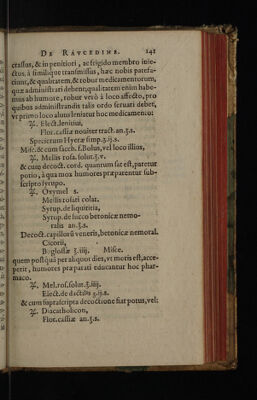 DE RAVCEDINE. 141
crassus, & in penitiori, ac frigido membro inie-
ctus, à similique transmissus, hæc nobis patefa-
ciunt, & qualitatem, & robur medicamentorum,
quæ administrari debent; qualitatem enim habe-
mus ab humore, robur verò à loco affecto, pro
quibus administrandis talis ordo seruari debet,
vt primo loco aluus leniatur hoc medicamento:
℞. Elect. lenitiui,
Flor. cassiæ nouiter tract. an. ʒ. s.
Specierum Hyeræ simp. ʒ. ij. s.
Misc. & cum sacch. f. Bolus, vel loco illius,
℞. Mellis rosa. solut. ʒ. v.
& cum decoct. cord. quantum sat est, paretur
potio, à qua mox humores præparentur sub-
scripto syrupo.
℞. Oxymel s.
Mellis rosati colat.
Syrup. de liquiritia,
Syrup. de succo betonicæ nemo-
ralis an. ʒ. s.
Decoct. capillorū veneris, betonicæ nemoral.
Cicorij,
Buglossæ ʒ. iiij. Misce.
quem postquā per aliquot dies, vt moris est, acce-
perit, humores præparati educantur hoc phar-
maco.
℞. Mel. ros. solut. ʒ. iiij.
Elect. de dactilis ʒ. ij. s.
& cum suprascripta decoctione fiat potus, vel:
℞. Diacatholicon,
Flor. cassiæ an. ʒ. s.